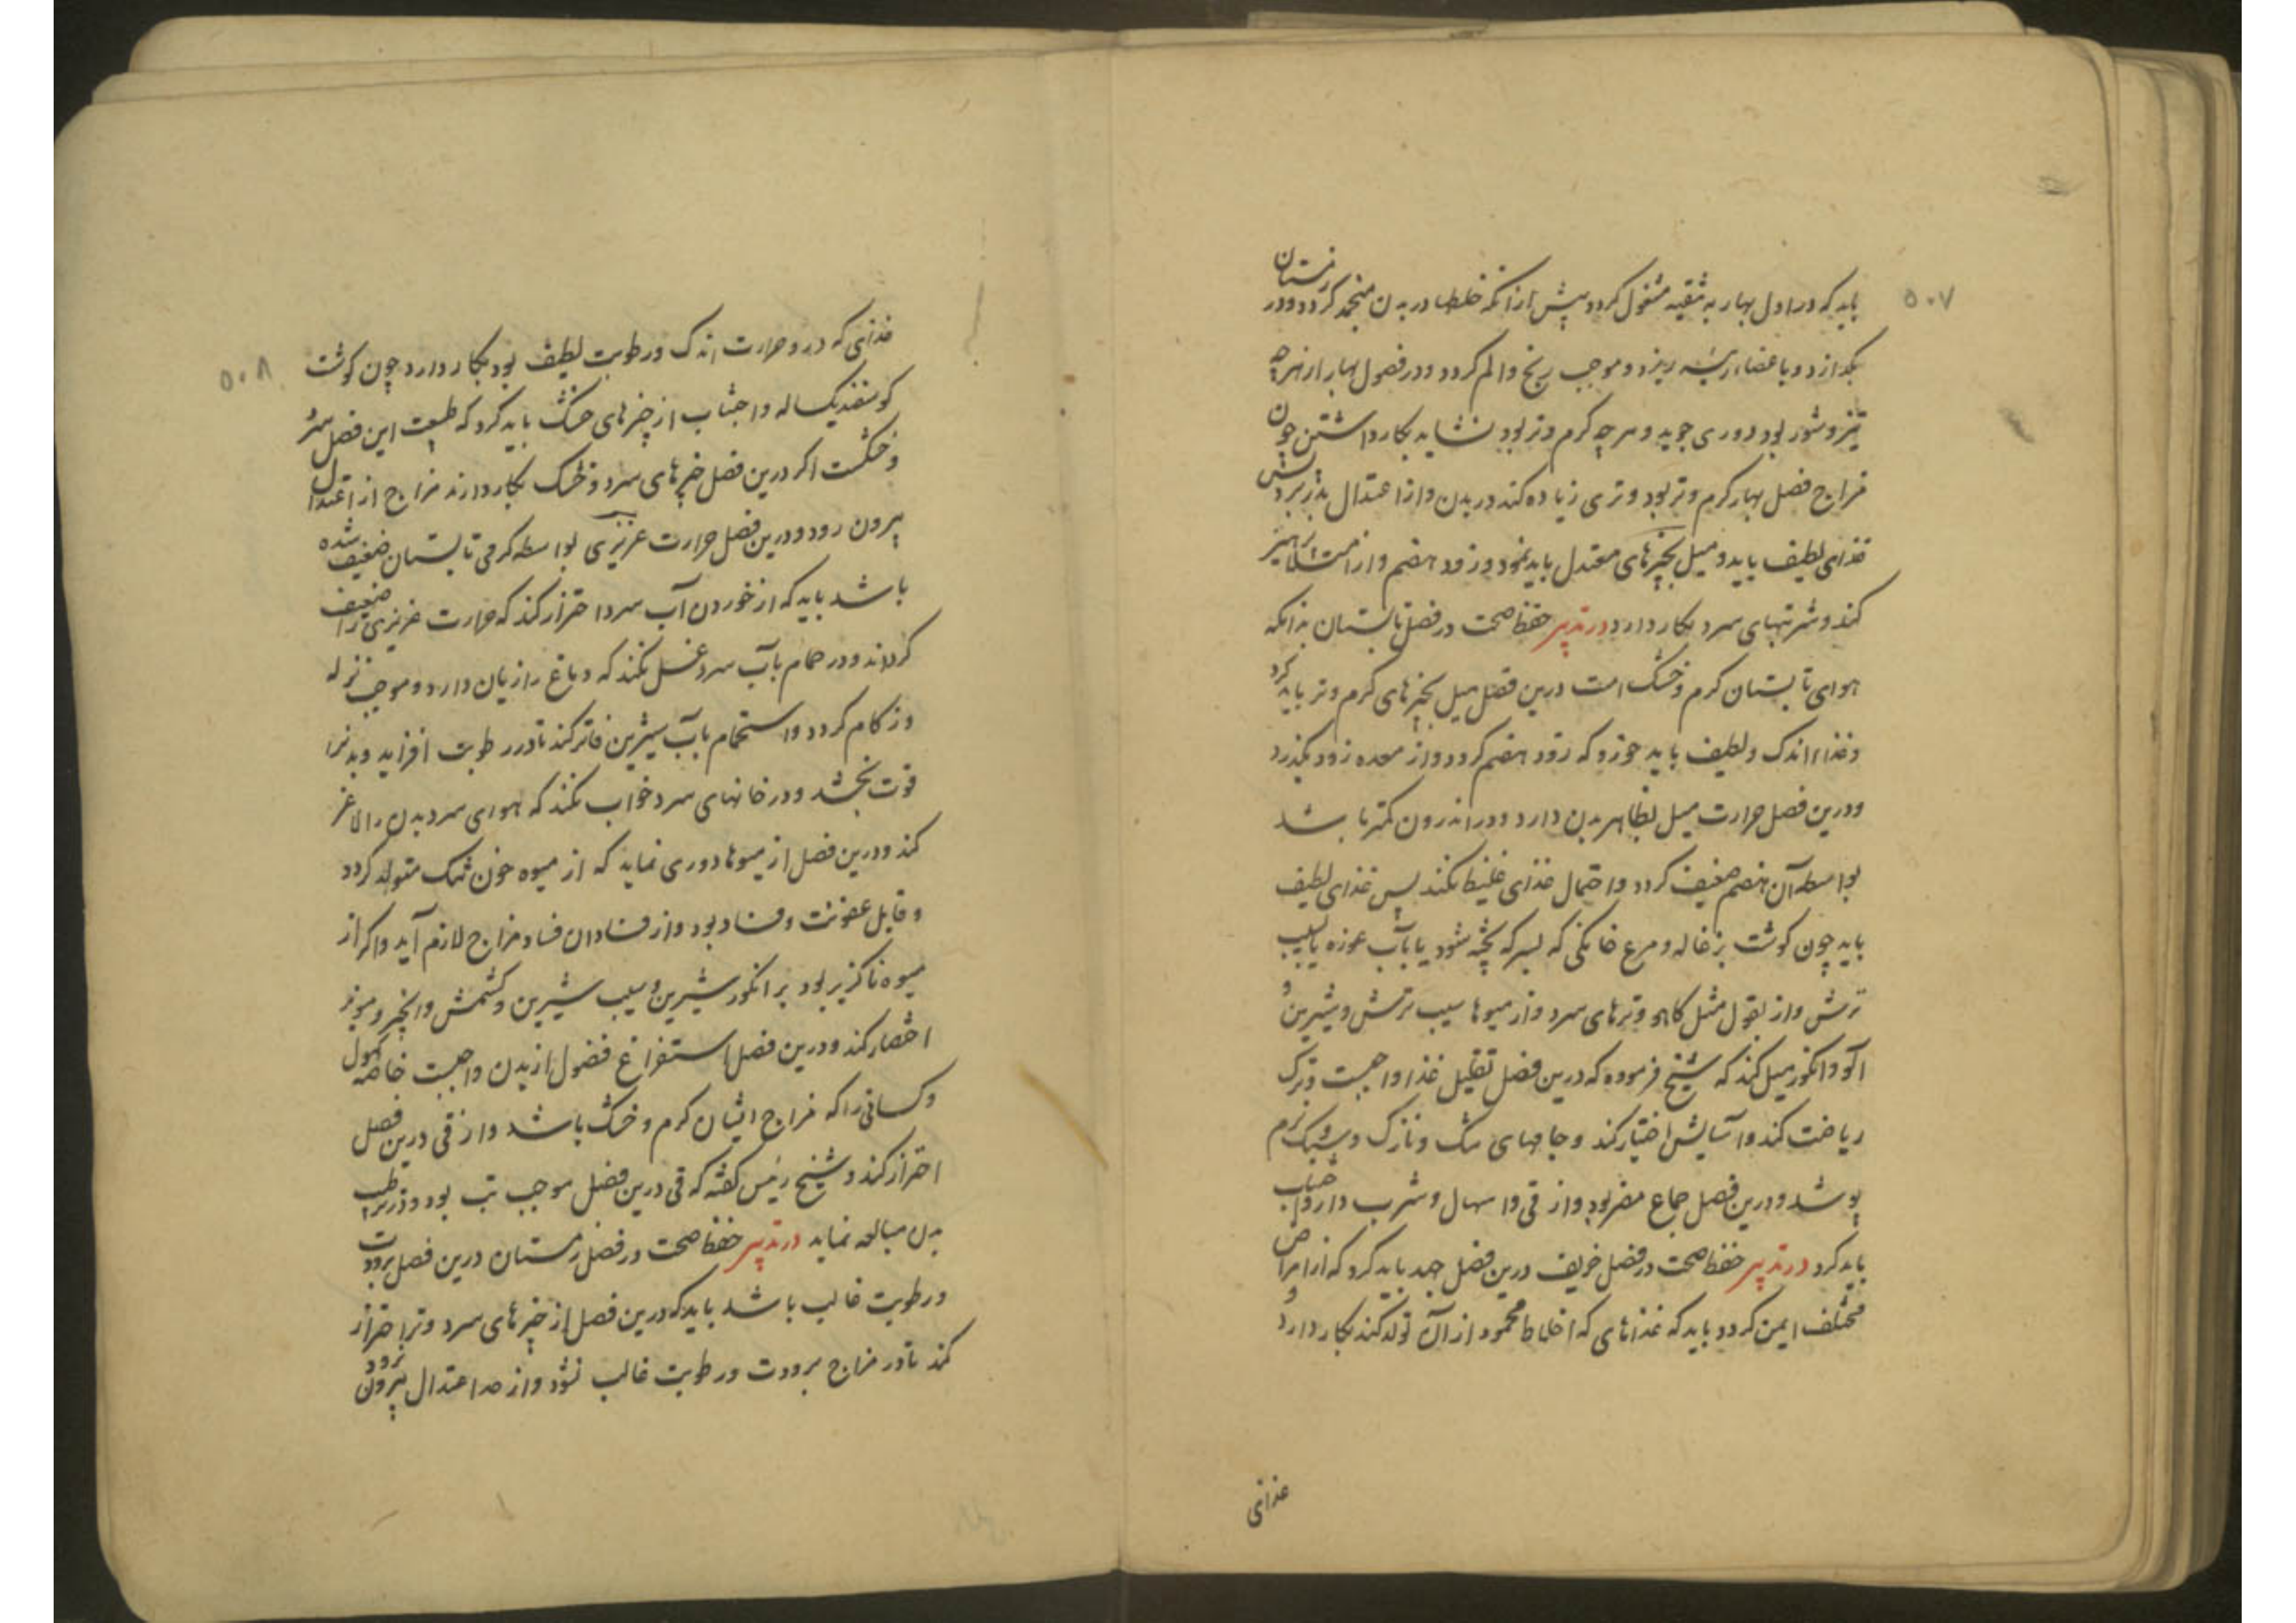 ۵۰۷
باید که در اول بهار به تنقیه مشغول کردد پیش از انکه خلطها در بدن منجمد کردد و در زمستان
بکدازد و باعضاء رئیسه ریزد و موجب رنج و الم کردد و در فصول بهار از هرچه
تیز و شور بود دوری جوید و هر چه کرم و تر بود نشاید بکار داشتن چون
مزاج فصل بهار کرم و تر بود و تری زیاده کند در بدن و از اعتدال بدر برد پس
غذای لطیف باید و میل بچیزهای معتدل باید نمود و زود هضم و از امتلا پرهیز
کند و شربتهای سرد بکار دارد در تدبیر حفظ صحت در فصل تابستان بدانکه
هوای تابستان کرم و خشک است درین فصل میل بچیزهای کرم و تر باید کرد
و غذاء اندک و لطیف باید خورد که زود هضم کردد و از معده زود بکذرد
و درین فصل حرارت میل بظاهر بدن دارد و در اندرون کمتر باشد
بواسطه آن هضم ضعیف کردد و احتمال غذای غلیظ نکند پس غذای لطیف
باید چون کوشت بزغاله و مرغ خانکی که بسرکه پخته شود یا بآب غوره یا بسیب
ترش و از بقول مثل کاهو و ترهای سرد و از میوها سیب ترش و شیرین و
آلو و انکور میل کند که شیخ فرموده که درین فصل تقلیل غذا واجبست و ترک
ریاضت کند و آسایش اختیار کند و جامهای تنک و نازک و سبک و نرم
پوشد و درین فصل جماع مضر بود و از قی و اسهال و شرب دارو اجتناب
باید کرد در تدبیر حفظ صحت در فصل خریف درین فصل جهد باید کرد که از امراض
مختلف ایمن کردد و باید که غذاهای که اخلاط محمود از آن تولد کند بکار دارد و
غذائی
۵۰۸
غذائی که درو حرارت اندک و رطوبت لطیف بود بکار دارد چون کوشت
کوسفند یکساله و اجتناب از چیزهای خشک باید کرد که طبیعت این فصل سرد
و خشکست اکر درین فصل چیزهای سرد و خشک بکار دارند مزاج از اعتدال
بیرون رود و درین فصل حرارت عزیزی بواسطه کرمی تابستان ضعیف شده
باشد باید که از خوردن آب سرد احتراز کند که حرارت عزیزی را ضعیف
کرداند و در حمام بآب سرد غسل نکند که دماغ را زیان دارد و موجب نزله
و زکام کردد و استحمام بآب شیرین فاتر کند تا در رطوبت افزاید و بدنرا
قوت بخشد و در خانهای سرد خواب نکند که هوای سرد بدن را لاغر
کند و درین فصل از میوها دوری نماید که از میوه خون تنک متولد کردد
و قابل عفونت و فساد بود و از فساد ان فساد مزاج لازم آید و اکر از
میوه ناکزیر بود بر انکور شیرین و سیب شیرین و کشمش و انجیر و مویز
اختصار کند و درین فصل استفراغ فضول از بدن واجبست خاصه کهول
و کسانی را که مزاج ایشان کرم و خشک باشد و از قی درین فصل
احتراز کند و شیخ رئیس کفته که قی درین فصل موجب تب بود و در ترطیب
بدن مبالغه نماید در تدبیر حفظ صحت در فصل زمستان درین فصل برودت
و رطوبت غالب باشد باید که درین فصل از چیزهای سرد و تر احتراز
کند تا در مزاج برودت و رطوبت غالب نشود و از حد اعتدال بیرون نرود